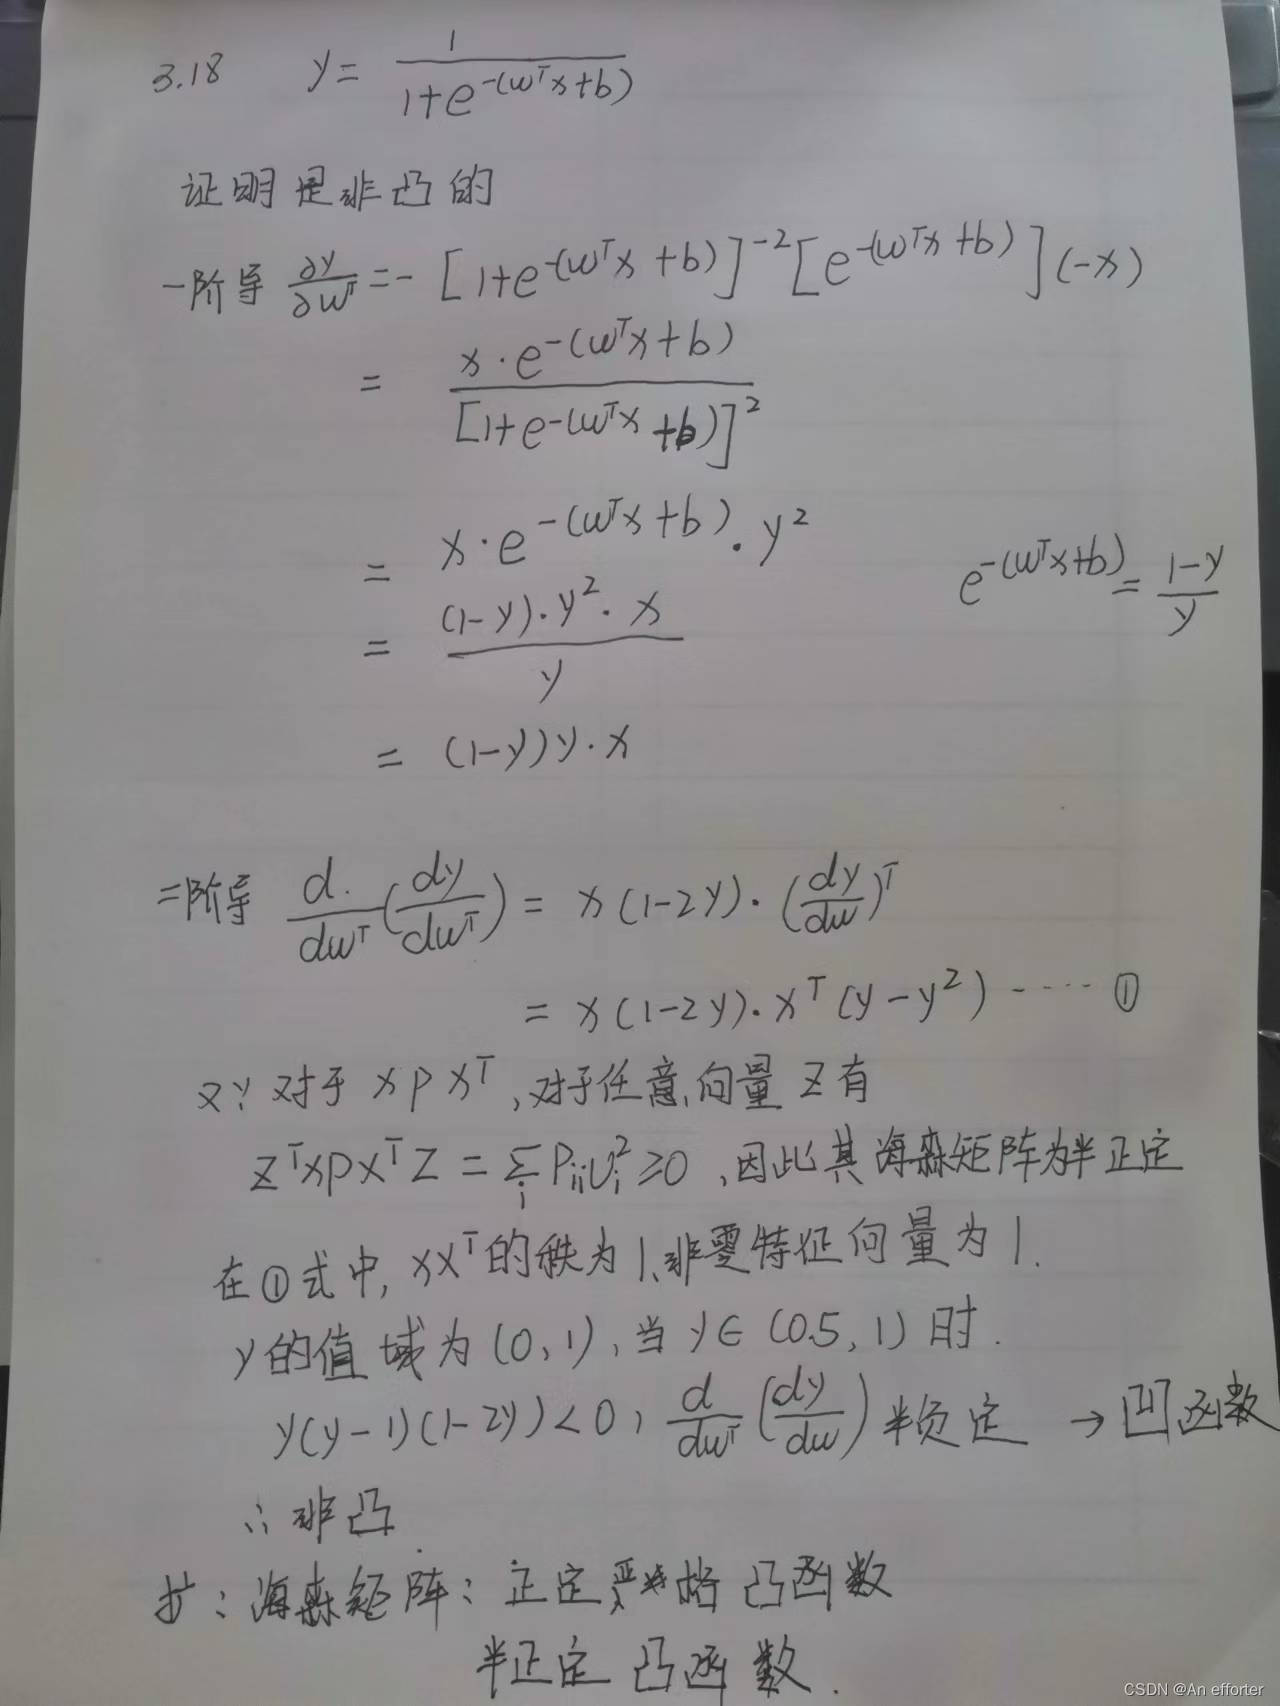 3.18 y = 1/(1+e^{-(w^T x+b)})
证明是非凸的
一阶导 ∂y/∂w^T = -[1+e^{-(w^T x+b)}]^{-2}[e^{-(w^T x+b)}](-x)
= x·e^{-(w^T x+b)}/[1+e^{-(w^T x+b)}]^2
= x·e^{-(w^T x+b)}·y^2 e^{-(w^T x+b)} = (1-y)/y
= (1-y)·y^2·x/y
= (1-y)y·x
二阶导 d/dw^T(dy/dw^T) = x(1-2y)·(dy/dw)^T
= x(1-2y)·x^T(y-y^2) ····· ①
又∵对于 xpx^T, 对于任意向量 z有
z^T x p x^T z = Σ_i P_{ii}v_i^2 ≥0, 因此其海森矩阵为半正定
在①式中, xx^T的秩为1、非零特征向量为1.
y的值域为(0,1), 当 y∈(0.5,1)时.
y(y-1)(1-2y)<0, d/dw^T(dy/dw)半负定 → 凹函数
∴非凸.
扩:海森矩阵:正定 严格 凸函数
半正定 凸函数.
CSDN @An efforter